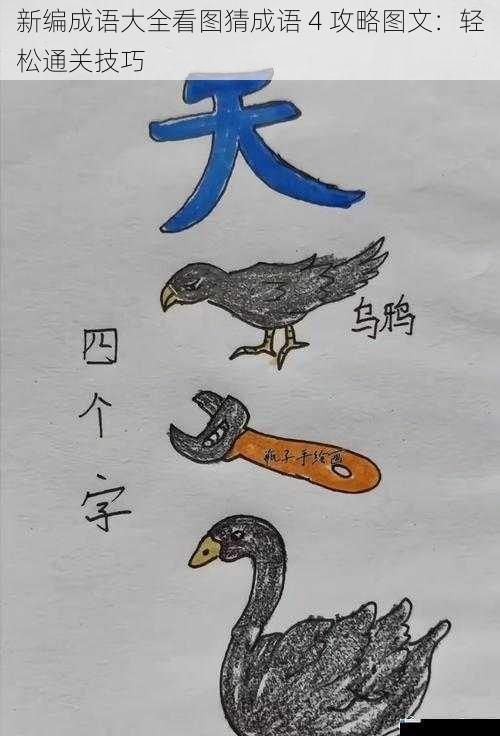 新编成语大全看图猜成语 4 攻略图文：轻
松通关技巧
天
乌鸦
四个字
瓶子手绘画